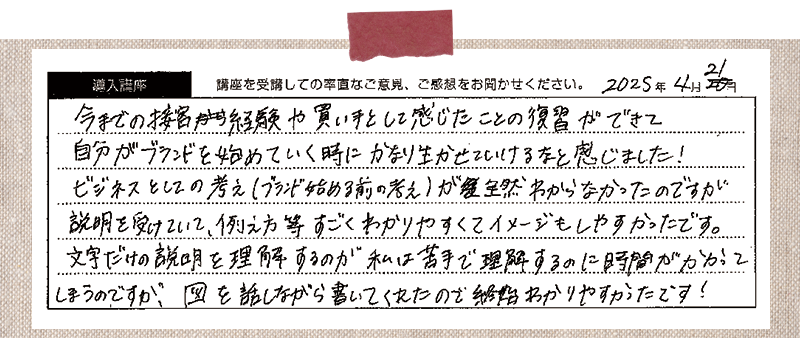 導入講座 講座を受講しての率直なご意見、ご感想をお聞かせください。 2025年 4月 21日
今までの接客経験や買い手として感じたことの復習ができて
自分がブランドを始めていく時にかなり生かせていけるなと感じました!
ビジネスとしての考え(ブランド始める前の考え)が全然わからなかったのですが
説明を受けていて、例え方等すごくわかりやすくてイメージもしやすかったです。
文字だけの説明を理解するのが私は苦手で理解するのに時間がかかって
しまうのですが、図を話しながら書いてくれたので終始わかりやすかったです!